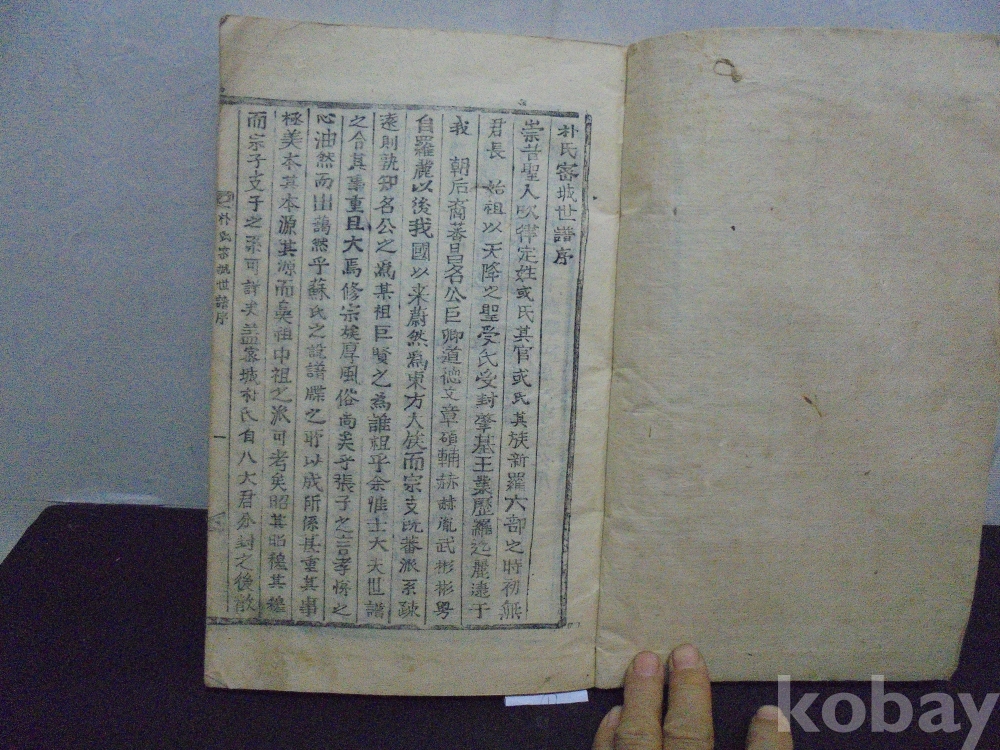 朴氏密城世譜序
崇昔聖人吹律定姓或氏其官或氏其族新羅六部之時初無
君長 始祖以天降之聖受氏受封肇基王業歷羅迄麗逮于
我 朝后裔蕃昌名公巨卿道德文章碩輔赫赫胤武彬彬粤
自羅麗以後我國以来蔚然爲東方大族而宗支既蕃派系疎
遠則孰知名公之爲某祖巨賢之爲誰祖乎余惟士大夫世譜
之合其事重且大焉修宗族厚風俗尚矣乎張子之言孝悌之
心油然而出藹然乎蘇氏之設譜牒之所以成所係甚重其事
極美本其本源其源而奠祖中祖之派可考矣昭其昭穆其穆
而宗子支子之系可詳矣益密城朴氏自八大君分封之後散
朴氏密城世譜序
一
kobay